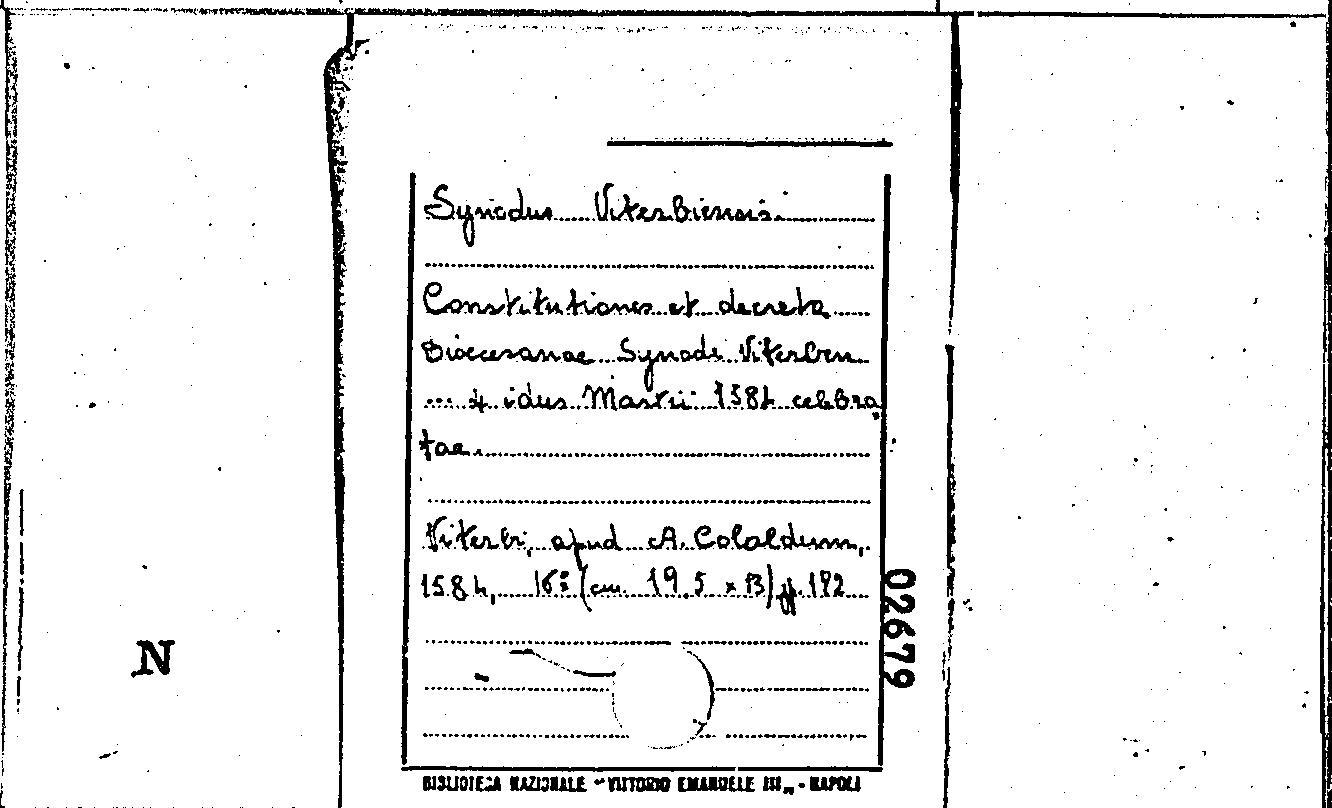 Synodus Viterbiensis.
Constitutiones et decreta
Dioecesanae Synodi Viterben
... 4 idus Martii 1584 celebra
tae.
Viterbi, apud A. Colaldum,
1584, 16º (cm. 19.5 x 13) pp. 192
02679
N
BIBLIOTECA NAZIONALE "VITTORIO EMANUELE III" - NAPOLI